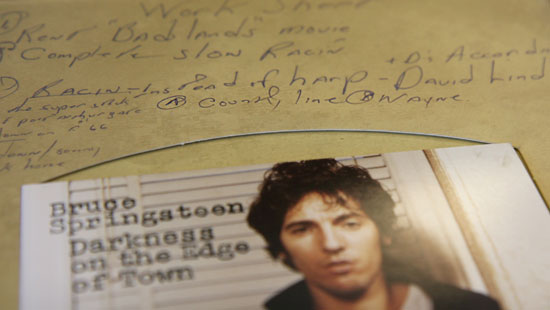 Work Sheet
Rent "Badlands" movie
Complete slow Racin'
+ Di Accord
Racin - Instead of harp - David Lind
the super stick
A County line B Wayne
Bruce
Springsteen
Darkness
on the Edge
of Town